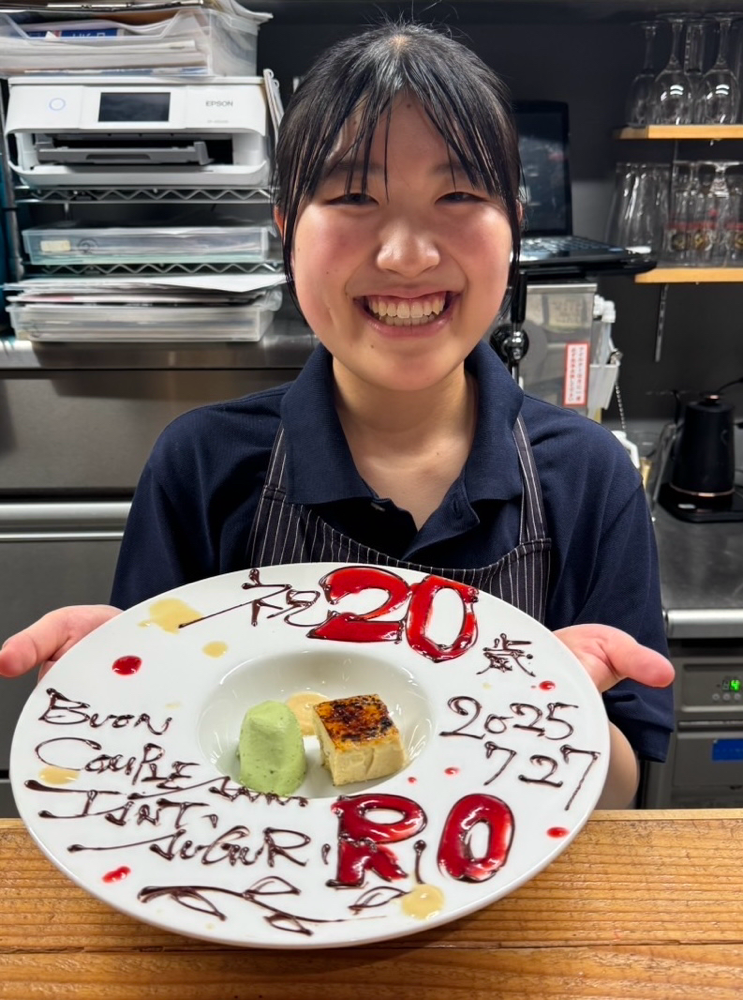 EPSON
祝20歳
2025
7 27
BUON
COMPLEANNO
TANTI
AUGURI
RIO